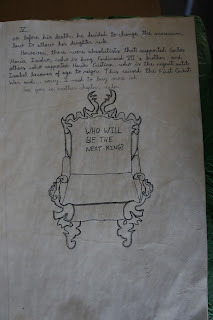 IV
before his death, he decided to change the
law to allow his daughter rule.
However, there were absolutists that supported Carlos
María Isidro, who is king Ferdinand VII's brother, and
others who supported María Cristina, who is the regent until
Isabel becomes of age to reign. This caused the First Carlist
War and... sorry, I need to
See you in another chapter,
WHO WILL
BE THE
NEXT KING?